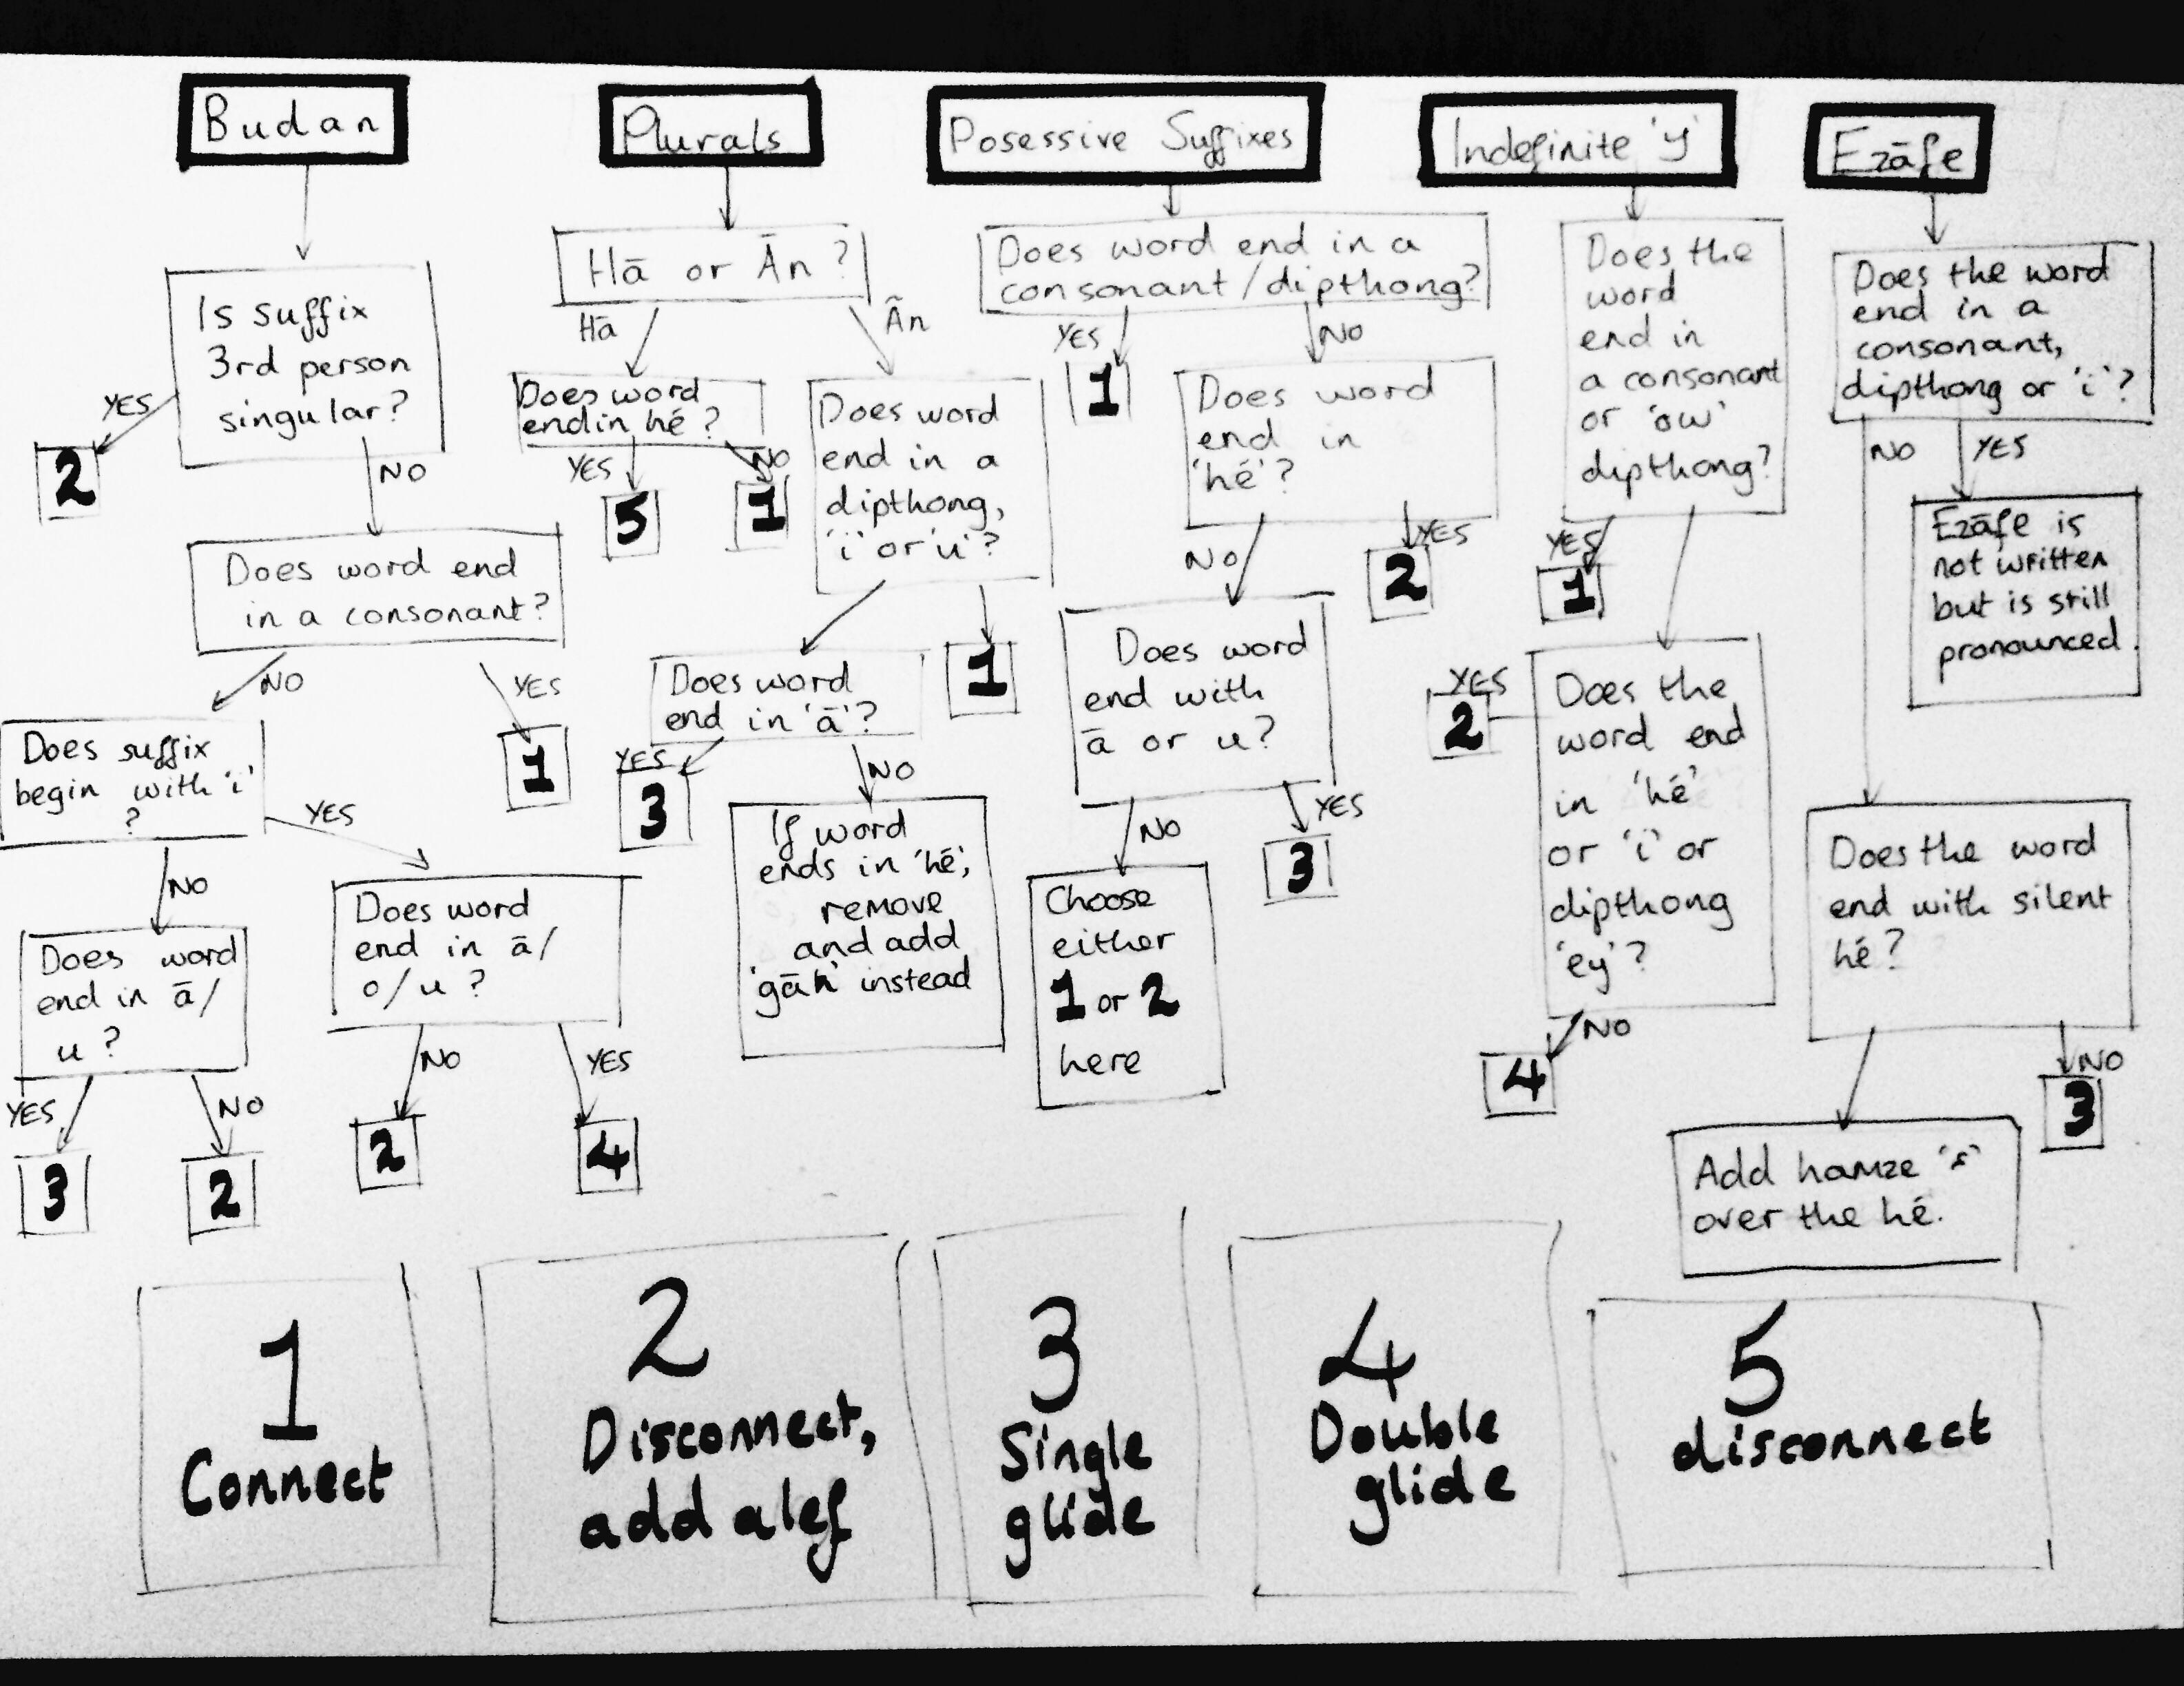 Budan
Is suffix
3rd person
singular?
YES
2
NO
Does word end
in a consonant?
NO
YES
1
Does suffix
begin with 'i'
?
YES
NO
Does word
end in ā/
u?
YES
3
NO
2
Does word
end in ā/
o/u?
NO
2
YES
4
Plurals
Hā or Ān?
Hā
Ān
Does word
end in hé?
YES
5
NO
1
Does word
end in a
dipthong,
'i' or 'u'?
1
Does word
end in 'ā'?
YES
3
NO
If word
ends in 'hé',
remove
and add
'gān' instead
Posessive Suffixes
Does word end in a
consonant/dipthong?
YES
1
NO
Does word
end in
'hé'?
NO
YES
2
Does word
end with
ā or u?
NO
YES
3
Choose
either
1 or 2
here
Indefinite 'y'
Does the
word
end in
a consonant
or 'ow'
dipthong?
YES
1
YES
2
Does the
word end
in 'hé'
or 'i' or
dipthong
'ey'?
NO
4
Ezāfe
Does the word
end in a
consonant,
dipthong or 'i'?
NO
YES
Ezāfe is
not written
but is still
pronounced.
Does the word
end with silent
hé?
NO
3
Add hamze 'ء'
over the hé.
1
Connect
2
Disconnect,
add alef
3
Single
glide
4
Double
glide
5
disconnect